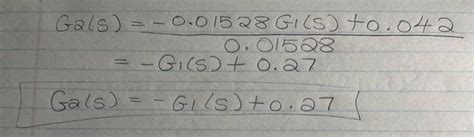 G2(S) = -0.01528G1(S) + 0.042
0.01528
= -G1(S) + 0.27
G2(S) = -G1(S) + 0.27